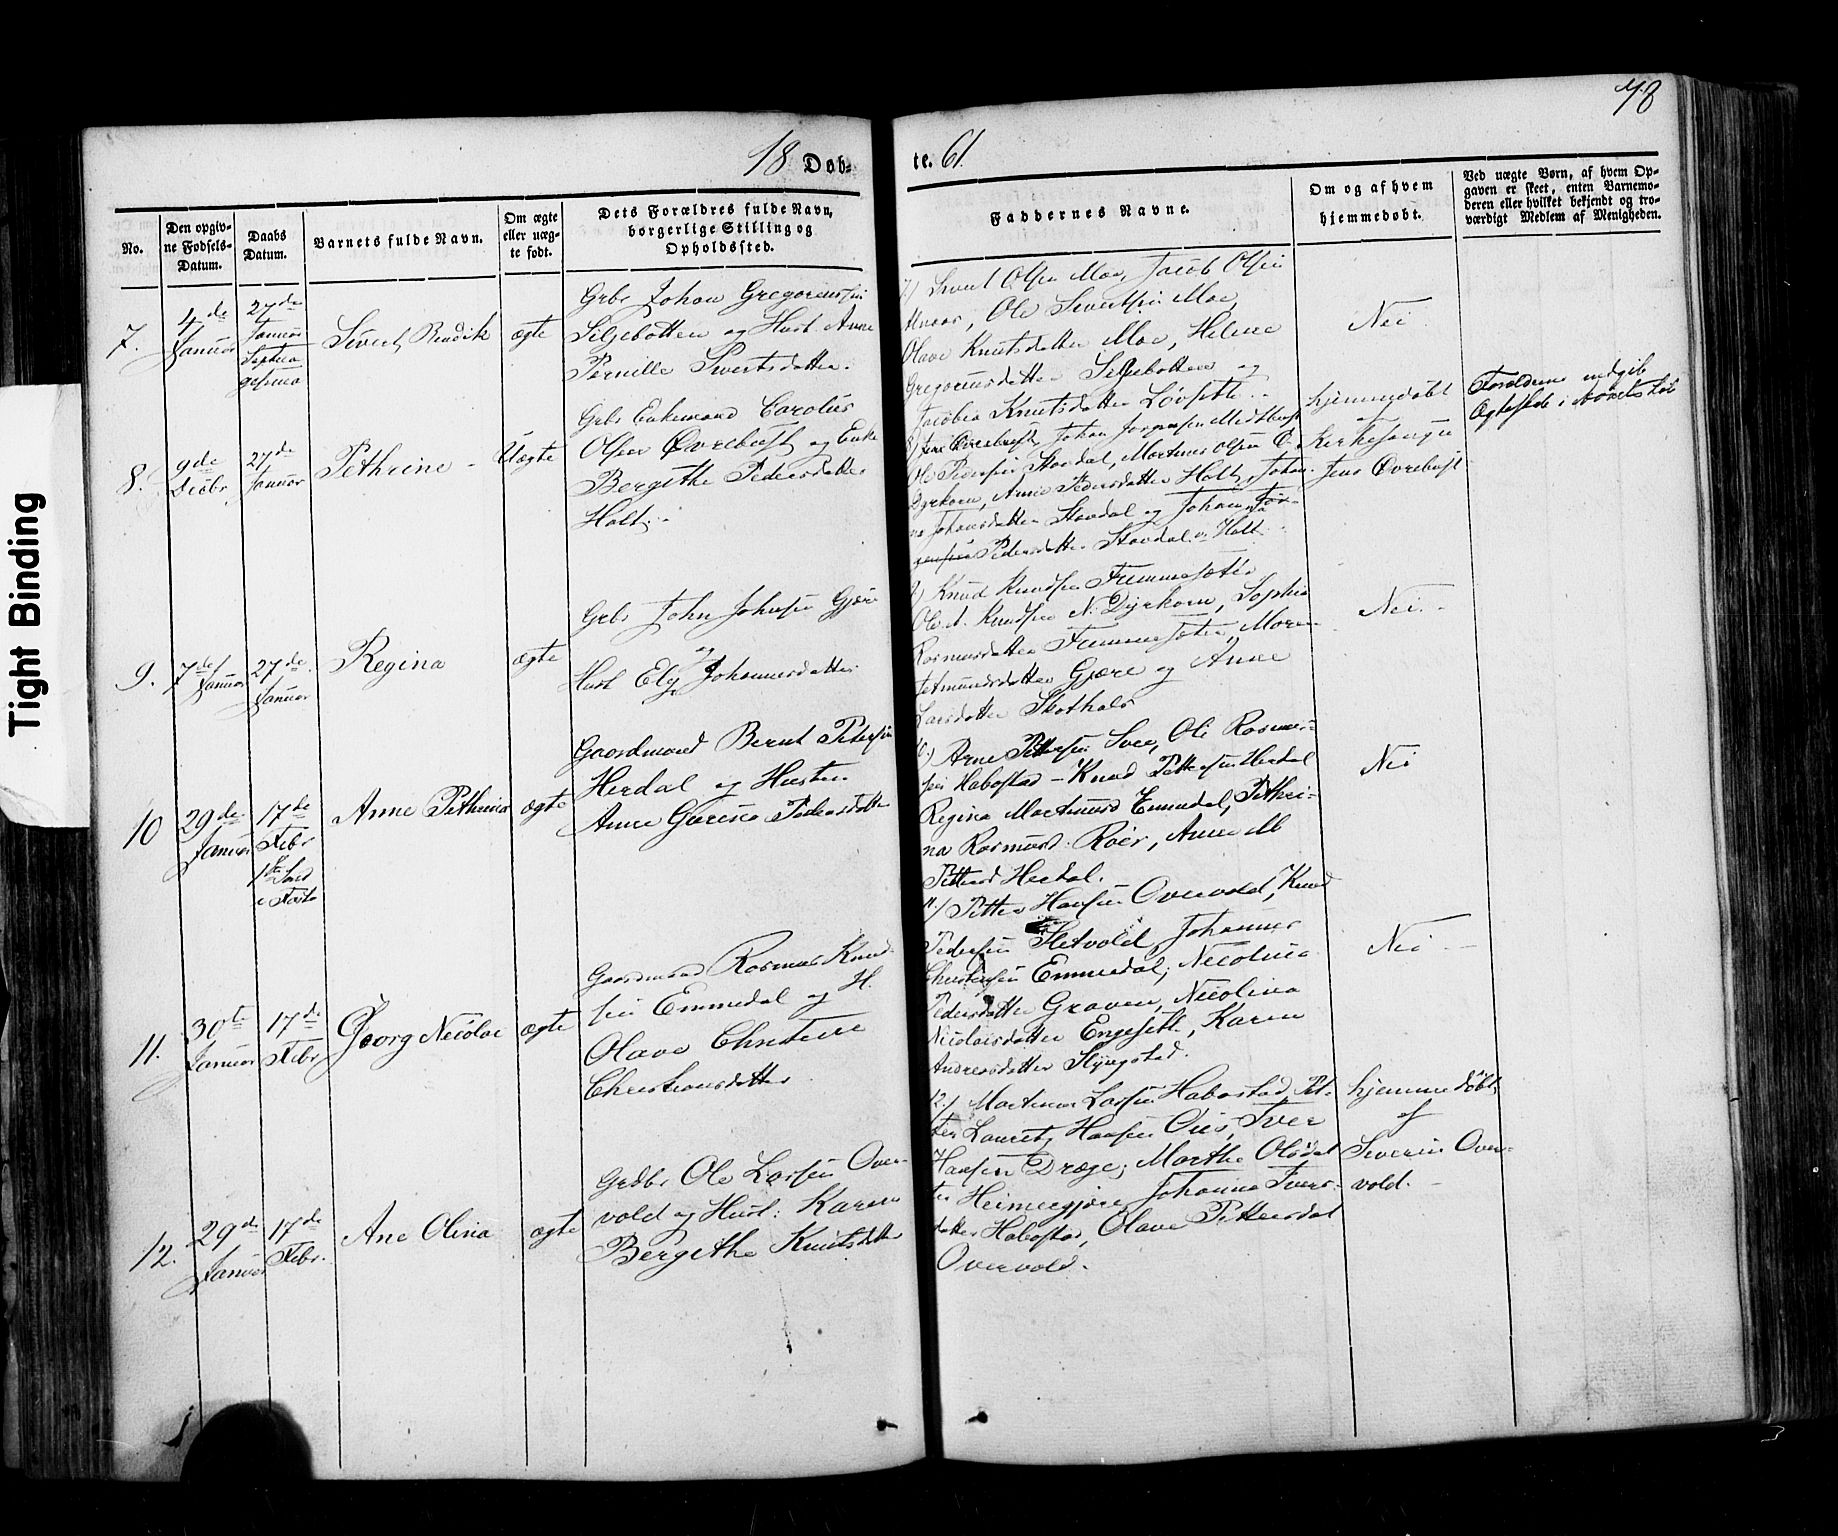 78
18 Døb-
te. 61.
No.
Den opgiv-
ne Fødsels-
Datum.
Daabs
Datum.
Barnets fulde Navn.
Om ægte
eller uæg-
te født.
Dets Forældres fulde Navn,
borgerlige Stilling og
Opholdssted.
Faddernes Navne.
Om og af hvem
hjemmedøbt.
Ved uægte Børn, af hvem Op-
gaven er skeet, enten Barnemo-
deren eller hvilket bekjendt og tro-
værdigt Medlem af Menigheden.
7.
4de
Januar
27de
Januar
Sivert Bendik
ægte
Grbr Johan Gregoriussen
Siljebotten og Hust. Anne
Pernille Sivertsdatter.
7) Sivert Olsen Moe, Jacob Olsen
Ole Sivertsen Moe
Olave Knutsdatter Moe, Helene
Gregoriusdatter Siljebotten og
Jacobia Knutsdatter Løvsætte.
Nei
8.
9de
Decbr
27de
Januar
Pethrine
Uægte
Grbr Enkemand Carolus
Olsen Øvrebust og Enke
Bergithe Pedersdatter
Holt.
8) Jens Øvrebust, Johan Jørgensen
Ole Pedersen Stavdal, Martinus Olsen
Dyrkorn, Anne Pedersdatter Holt, Johan-
ne Johansdatter Stavdal og Johanne Jør-
gensen Pedersdatter Stavdal v Holt.
hjemmedøbt
af
Kirkesanger
Jens Øvrebust
Forældrene indgik
Ægteskab i
9.
7de
Januar
27de
Januar
Regina
ægte
Grbr John Johnsen Gjære
og
Hust Ely Johannesdatter
9) Knud Knudsen Fremmesæter
Ole A. Knudsen N. Dyrkorn, Sophie
Rasmusdatter Fremmesæter, Maren
Aamundsdatter Gjære og Anne
Larsdatter Skothals
Nei.
10
29de
Januar
17de
Febr
1ste Sønd
i Faste
Anne Pethrina
ægte
Gaardmand Bernt Petersen
Herdal og Hustru
Anne Gurina Pedersdatter
10) Arne Pettersen Svee, Ole Rasmus-
sen Habostad - Knud Pettersen Herdal
Regina Martinusd Emmedal, Pethri-
na Rasmusd. Røer, Anne M
Pettersd Herdal.
Nei
11.
30te
Januar
17de
Febr
Georg Nicolai
ægte
Gaardmand Rasmus Knud-
sen Emmedal og H.
Olave Christine
Christiansdatter
11.) Petter Hansen Overvold, Knud
Pedersen Sletvold, Johannes
Christensen Emmedal, Nicolina
Pedersdatter Graven, Nicolina
Nicolaisdatter Engesett, Karen
Andreasdatter Slyngstad.
Nei
12.
29de
Januar
17de
Febr.
Ane Olina
ægte
Grdbr Ole Larsen Over-
vold og Hust: Karen
Bergithe Knutsdatter
12.) Martinus Larsen Habostad, Pet-
ter Lauritz Hansen Øies, Iver
Hansen Drage, Marthe Olsdat-
ter Heimegjære, Johanne Ivers-
datter Habostad, Olave Pettersdat
Overvold.
hjemmedøbt
af
Severin Over-
vold.
Tight Binding